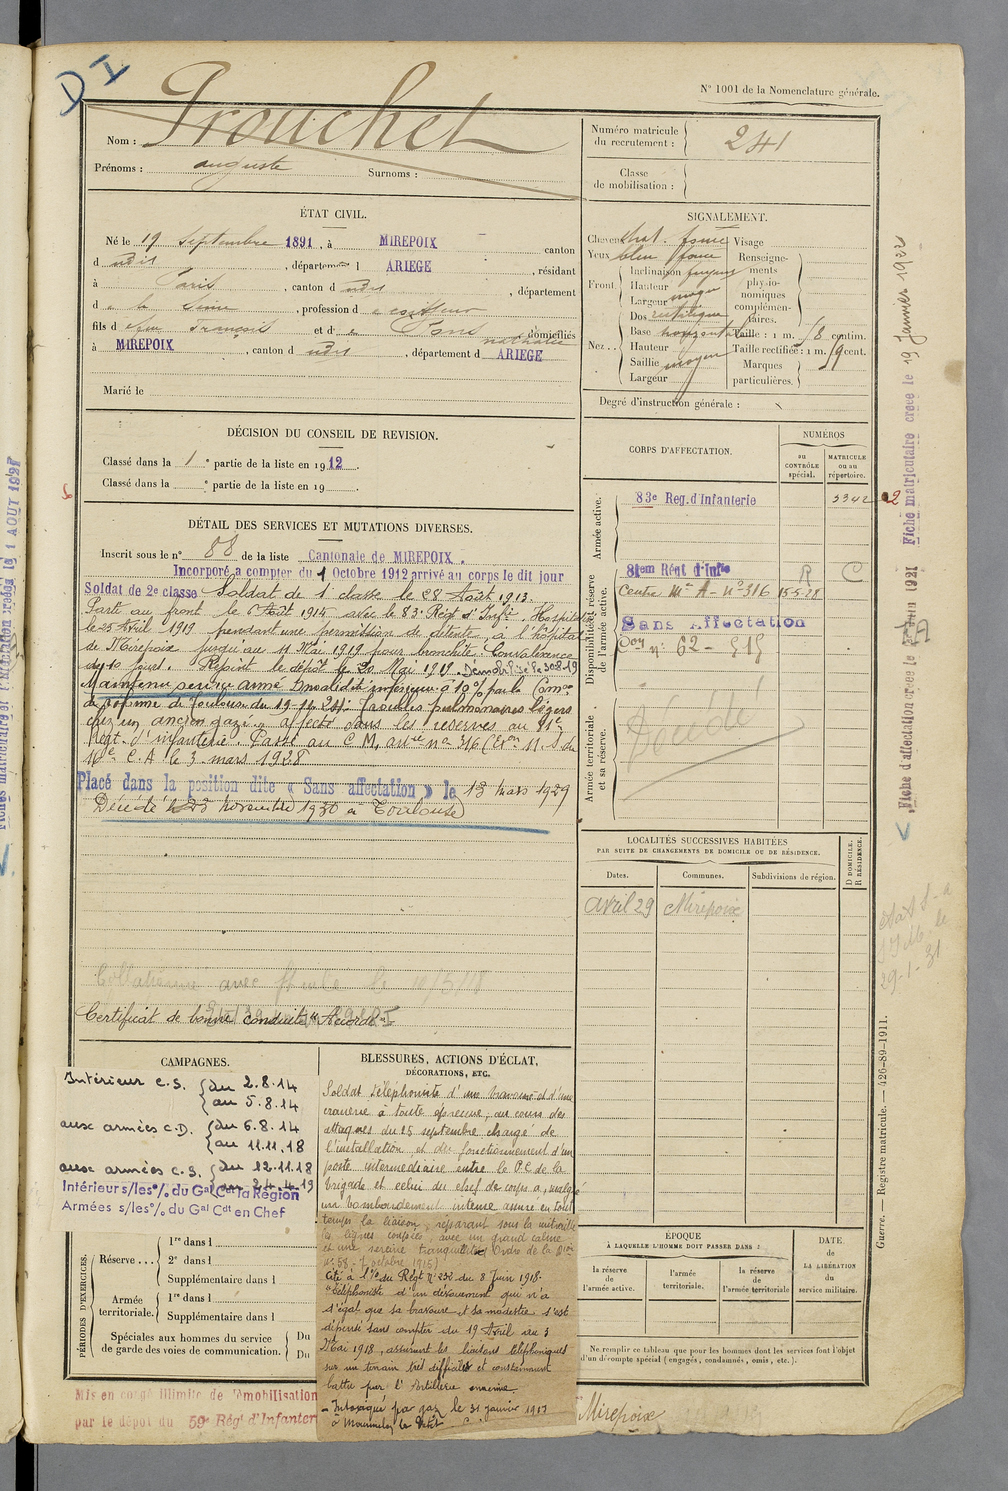 D I
N° 1001 de la Nomenclature générale.
Nom : Prouchet
Prénoms : auguste Surnoms :
Numéro matricule du recrutement : 241
Classe de mobilisation :
ÉTAT CIVIL.
Né le 19 septembre 1891, à MIREPOIX canton
d dudit, département d ARIEGE, résidant
à Paris, canton d dudit, département
d e la Seine, profession d e coiffeur
fils d e feu François et d e Pons Nathalie, domiciliés
à MIREPOIX, canton d dudit, département d ARIEGE
Marié le
SIGNALEMENT.
Cheveux chat. foncé Visage
Yeux bleu foncé Renseignements physionomiques complémentaires.
Front Inclinaison fuyant
Hauteur moyen
Largeur
Nez Dos rectiligne
Base horizontale Taille : 1 m. 58 centim.
Hauteur Taille rectifiée : 1 m. 59 cent.
Saillie moyen Marques particulières.
Largeur
Degré d'instruction générale :
DÉCISION DU CONSEIL DE REVISION.
Classé dans la 1e partie de la liste en 1912.
Classé dans la e partie de la liste en 19 .
DÉTAIL DES SERVICES ET MUTATIONS DIVERSES.
Inscrit sous le n° 88 de la liste Cantonale de MIREPOIX.
Incorporé a compter du 1 Octobre 1912 arrivé au corps le dit jour
Soldat de 2e classe Soldat de 1e classe le 28 Août 1913.
Parti au front le 6 Août 1914 avec le 83e Régt d'Infie. Hospitalisé
le 25 Avril 1919 pendant une permission de détente, à l'hôpital
de Mirepoix jusqu'au 11 Mai 1919 pour bronchite. Convalescence
de 10 jours. Rejoint le dépôt le 20 Mai 1919. Démobilisé le 30.8.19
Maintenu service armé Invalidité inférieure à 10 % par la Comon
de réforme de Toulouse du 19-11-24 : faibles pulmonaires légers
chez un ancien gazé. affecté dans les réserves au 81e
Régt d'infanterie. Passé au C M. anie n° 316 (Exon 11. S du
16e C.A le 3 mars 1928
Placé dans la position dite « Sans affectation » le 13 mars 1929
Décédé le 23 novembre 1930 à Toulouse
Certificat de bonne conduite "Accordé"
CORPS D'AFFECTATION.
NUMÉROS
au CONTRÔLE spécial.
MATRICULE ou au répertoire.
Armée active.
83e Reg. d'Infanterie 5342
Disponibilité et réserve de l'armée active.
81em Régt d'Infie R C
Centre Me A - n° 316 15-5-28
Sans Affectation
Don n° 62 - 515
Armée territoriale et sa réserve.
Décédé
LOCALITÉS SUCCESSIVES HABITÉES
PAR SUITE DE CHANGEMENTS DE DOMICILE OU DE RÉSIDENCE.
Dates. Communes. Subdivisions de région. D DOMICILE. R RÉSIDENCE.
avril 29 Mirepoix
CAMPAGNES.
Intérieur C.S. du 2.8.14
au 5.8.14
aux armées C.D. du 6.8.14
au 11.11.18
aux armées C.S. du 12.11.18
au 24.4.19
Intérieur s/les % du Gal Cdt la Région
Armées s/les % du Gal Cdt en Chef
BLESSURES, ACTIONS D'ÉCLAT,
DÉCORATIONS, ETC.
Soldat téléphoniste d'une bravoure et d'une
crânerie à toute épreuve, au cours des
attaques du 25 septembre chargé de
l'installation et du fonctionnement d'un
poste intermédiaire entre le P.C de la
brigade et celui du chef de corps a, malgré
un bombardement intense assuré en tout
temps la liaison, réparant sous la mitraille
les lignes coupées, avec un grand calme
et une sereine tranquillité (Ordre de la Don
n° 58 - 7 octobre 1915)
Cité à l'O. du Régt n° 232 du 8 Juin 1918.
"téléphoniste d'un dévouement qui n'a
d'égal que sa bravoure et sa modestie s'est
dépensé sans compter du 19 Avril au 3
Mai 1918, assurant les liaisons téléphoniques
sur un terrain très difficile et constamment
battu par l'Artillerie ennemie.
- Intoxiqué par gaz le 31 janvier 1917
à Mourmelon le Petit
PÉRIODES D'EXERCICES.
Réserve... 1re dans l
2e dans l
Supplémentaire dans l
Armée territoriale. 1re dans l
2e dans l
Supplémentaire dans l
Spéciales aux hommes du service de garde des voies de communication. Du
Du
ÉPOQUE
À LAQUELLE L'HOMME DOIT PASSER DANS :
la réserve de l'armée active. l'armée territoriale. la réserve de l'armée territoriale
DATE. de LA LIBÉRATION du service militaire.
Ne remplir ce tableau que pour les hommes dont les services font l'objet
d'un décompte spécial (engagés, condamnés, omis, etc.).
Mis en congé illimité de démobilisation
par le dépôt du 59e Rég! d'Infanterie
Mirepoix
Fiche matriculaire créée le 19 Janvier 1922
Guerre. — Registre matricule. — 426-89-1911.